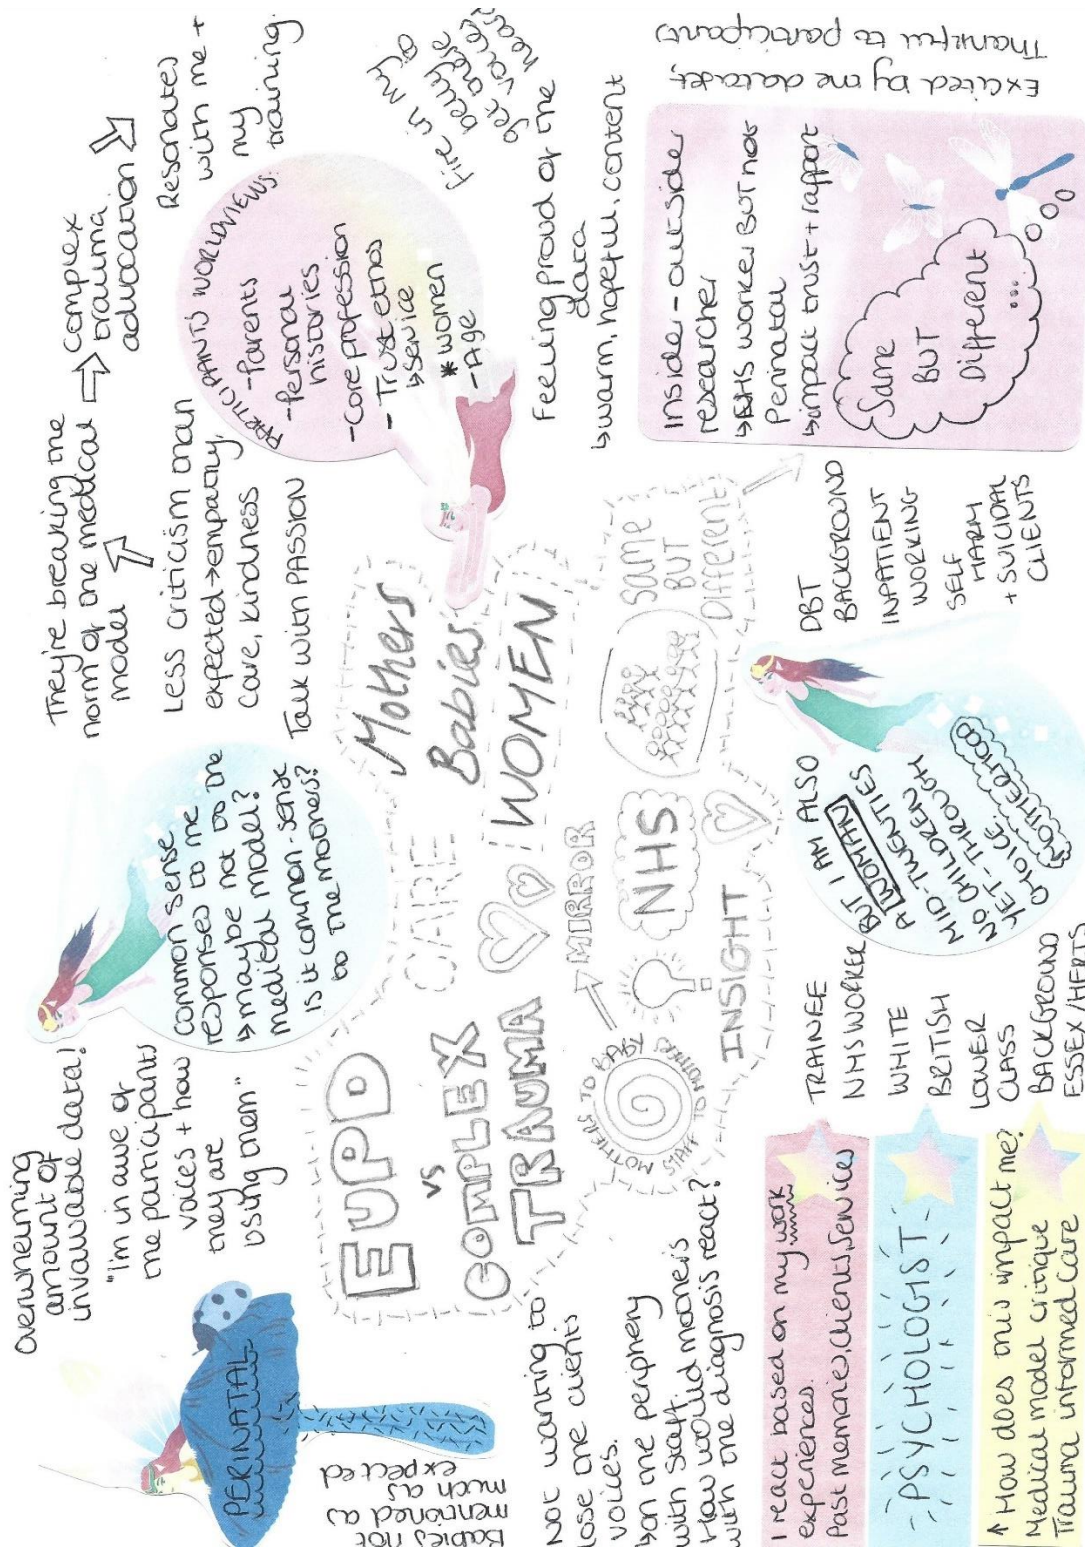 Overwhelming
amount of
invaluable data!
"I'm in awe of
the participants
voices + how
they are
using them"
PERINATAL
Babies not
mentioned as
much as
expected
Common sense
responses to me
↳ maybe not to the
medical model?
Is it common-sense
to the mothers?
They're breaking the
norm of the medical
model
→ complex
trauma
advocation
Resonates
with me +
my
training.
Less criticism than
expected → empathy,
care, kindness
Talk with PASSION
PARTICIPANTS WORLDVIEWS:
- Parents
- Personal
histories
- Core profession
- Trust ethos
↳ Service
* women
- Age
Fire in my
belly to
get these
voices
heard
Feeling proud of the
data
↳ warm, hopeful, content
EUPD
vs
COMPLEX
TRAUMA
CARE
Mothers
Babies
WOMEN
MIRROR
MOTHERS TO BABY
STAFF TO MOTHERS
NHS
INSIGHT
Same
BUT
Different
Not wanting to
lose the clients
voices.
↳ on the periphery
with staff. mothers
How would mothers react?
with the diagnosis
I react based on my work
experiences.
Past memories, clients, services
PSYCHOLOGIST
↑ How does this impact me?
Medical model critique
Trauma informed care
TRAINEE
NHS WORKER
WHITE
BRITISH
LOWER
CLASS
BACKGROUND
ESSEX/HERTS
BUT I AM ALSO
A WOMAN
MID-TWENTIES
NO CHILDREN
YET - THROUGH
CHOICE
MOTHERHOOD
DBT
BACKGROUND
INPATIENT
WORKING
SELF
HARM
+ SUICIDAL
CLIENTS
Inside-outsider
researcher
↳ NHS worker BUT not
Perinatal
↳ impact trust + rapport
Same
BUT
Different
...
Excited by the dataset,
Thankful to participants